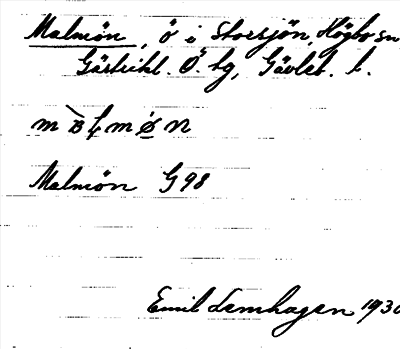 Malmön, ö i Storsjön, Högbo sn
Gästrikl. Ö. tg, Gävleb. l.
Malmön G98
Emil Lemhagen 1930